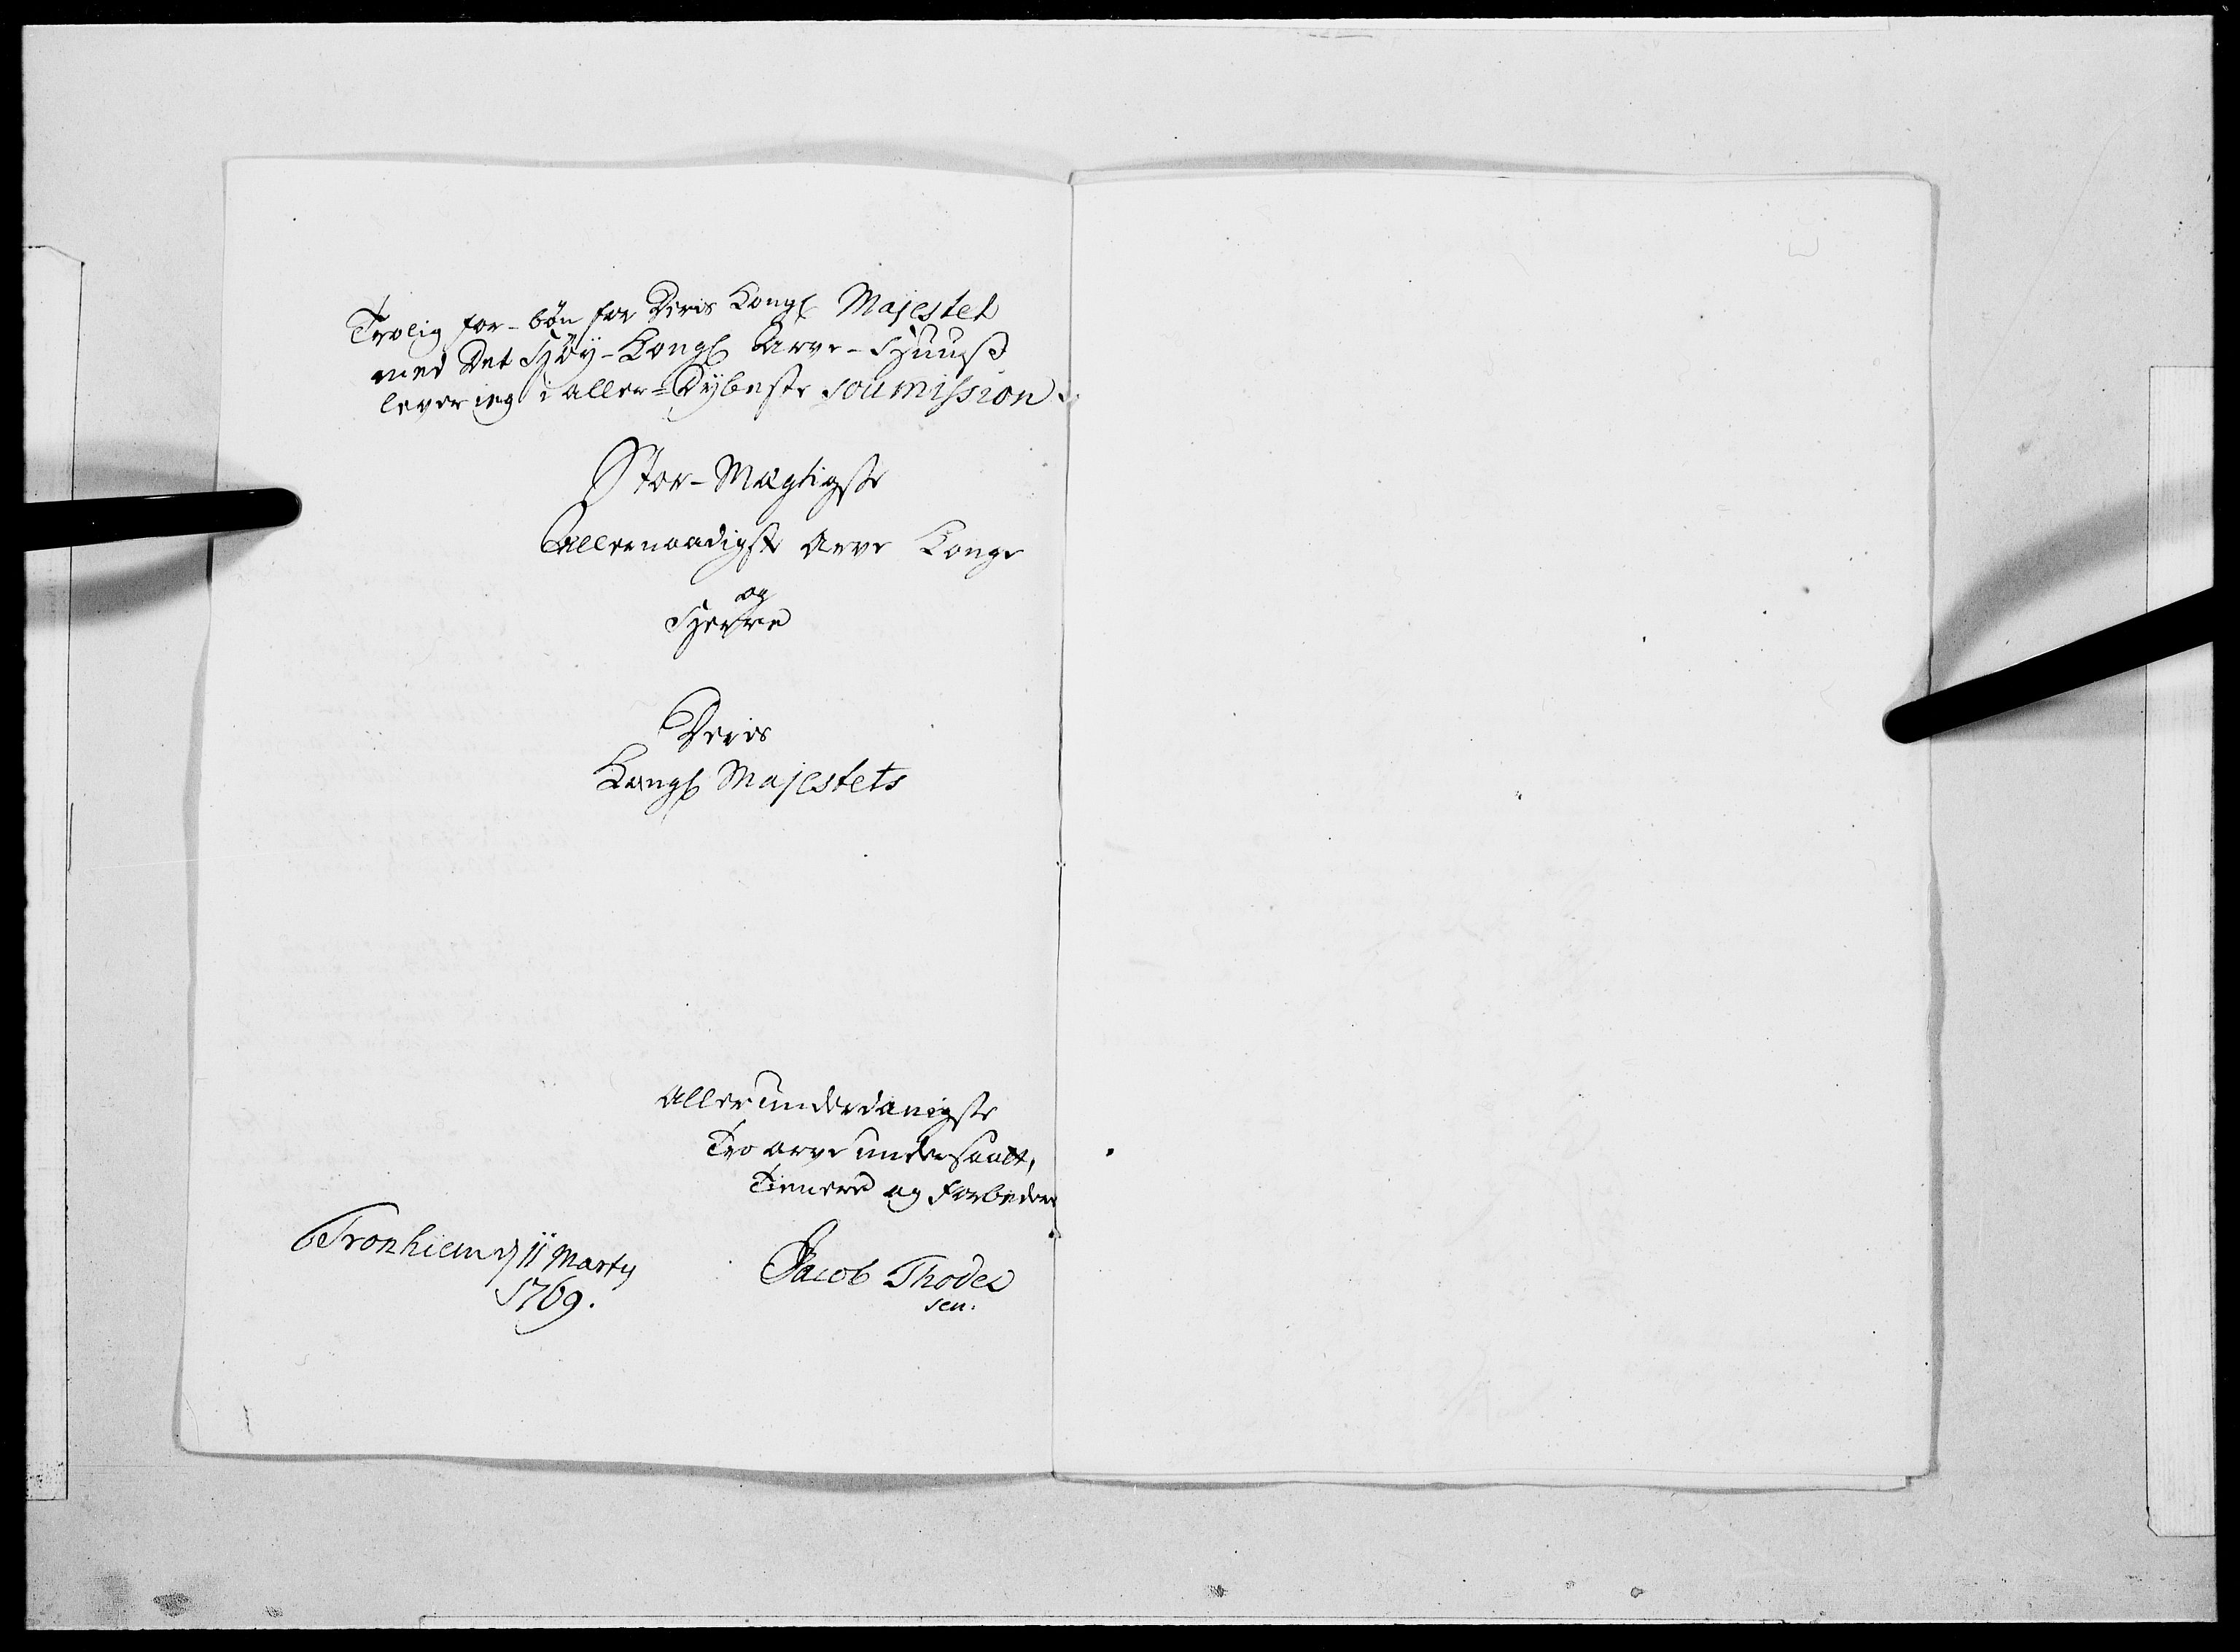 Trolig for-bön for Deris Kongl Majestet
med Det Høy-Kongl Arve-Huuß
lever ieg i aller-Dybeste soumission.
Stor-Mægtigste
Allernaadigste Arve Konge
og
Herre
Deris
Kongl Majestets
Allerunderdanigste
Tro arve undersaatt,
Tienere og forbedere
Tronhiem d 11 Marty
1769.
Jacob Thode
sen.